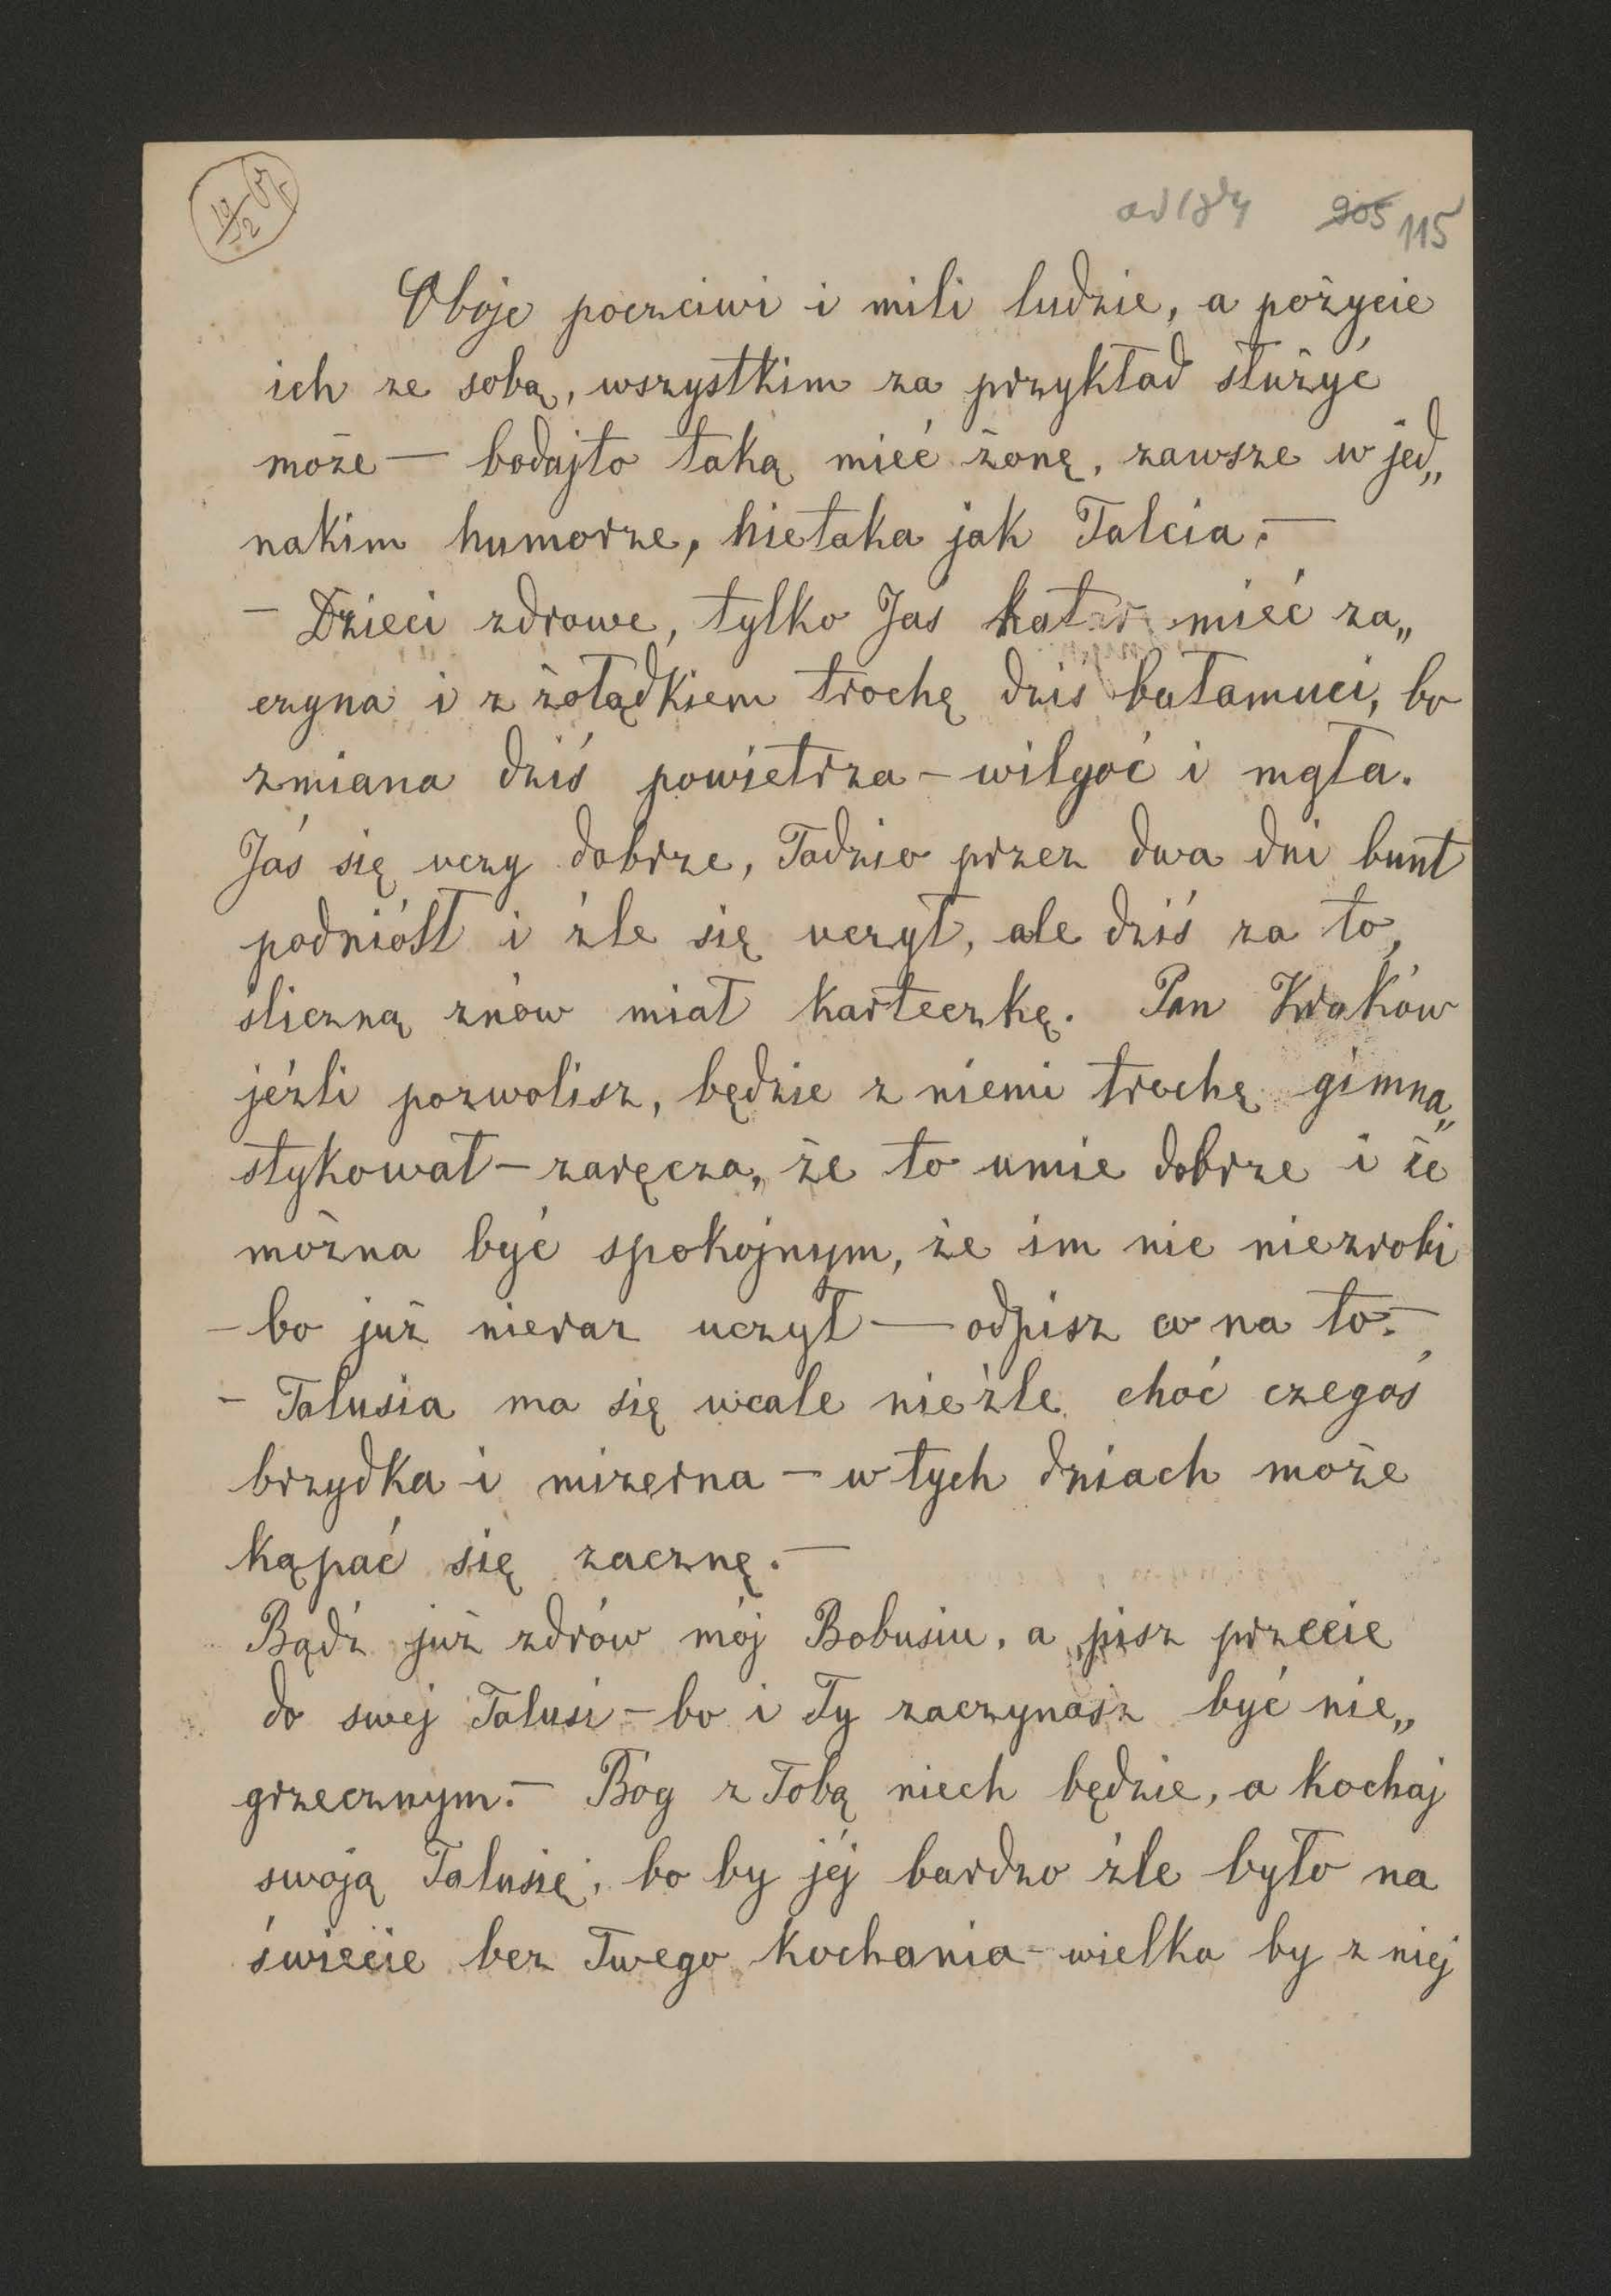 19/2 67
ad 184 905 115
Oboje poczciwi i mili ludzie, a pożycie
ich ze sobą, wszystkim za przykład służyć
może — bodajto taką mieć żonę, zawsze w jed„
nakim humorze, nietaka jak Talcia. —
— Dzieci zdrowe, tylko Jas katar mieć za„
czyna i z żołądkiem trochę dzis bałamuci, bo
zmiana dziś powietrza — wilgoć i mgła.
Jaś się uczy dobrze, Tadzio przez dwa dni bunt
podniósł i źle się uczył, ale dziś za to,
śliczną znów miał karteczkę. Pan Kraków
jeźli pozwolisz, będzie z niemi trochę gimna„
stykował — zaręcza, że to umie dobrze i że
można być spokojnym, że im nic niezrobi
— bo już nieraz uczył — odpisz co na to. —
— Talusia ma się wcale nieźle choć czegoś
brzydka i mizerna — w tych dniach może
kąpać się zacznę. —
Bądź już zdrów mój Bobusiu, a pisz przecie
do swej Talusi — bo i Ty zaczynasz być nie„
grzecznym. — Bóg z Tobą niech będzie, a kochaj
swoją Talusię, bo by jéj bardzo źle było na
świecie bez Twego kochania — wielka by z niej